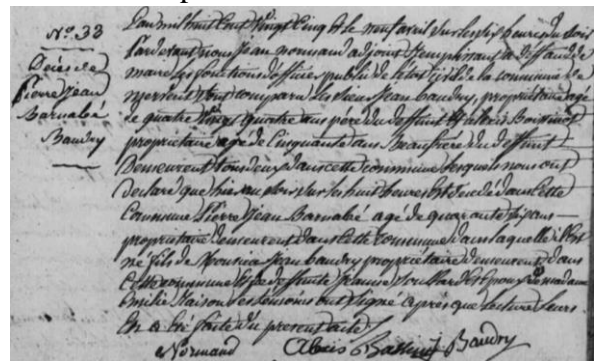 N° 33
Décès de
Pierre Jean
Barnabé
Baudry
L'an mil huit cent vingt cinq & le neuf avril sur les six heures du soir
Pardevant nous Jean normand adjoint remplissant a deffaud de
maire les fonctions d'officier public de l'état civil de la commune de
mervent sont comparu les sieurs Jean baudry, propriétaire agé
de quatre vingt quatre ans père du deffunt & alexis
propriétaire agé de Cinquante ans Beaufrère du deffunt
Demeurent tous deux dans cette commune lesquels nous ont
declaré que hier au soir sur les huit heures est decédé dans cette
Commune Pierre Jean Barnabé agé de quarante six ans
propriétaire demeurent dans cette commune dans laquelle il est
né fils de Monsieur Jean baudry propriétaire demeurent dans
cette commune & de deffunte jeanne & époux de madame
Emilie les témoins ont signé après que lecture leurs
en a été faite du present acte
Normand Alexis Baudry